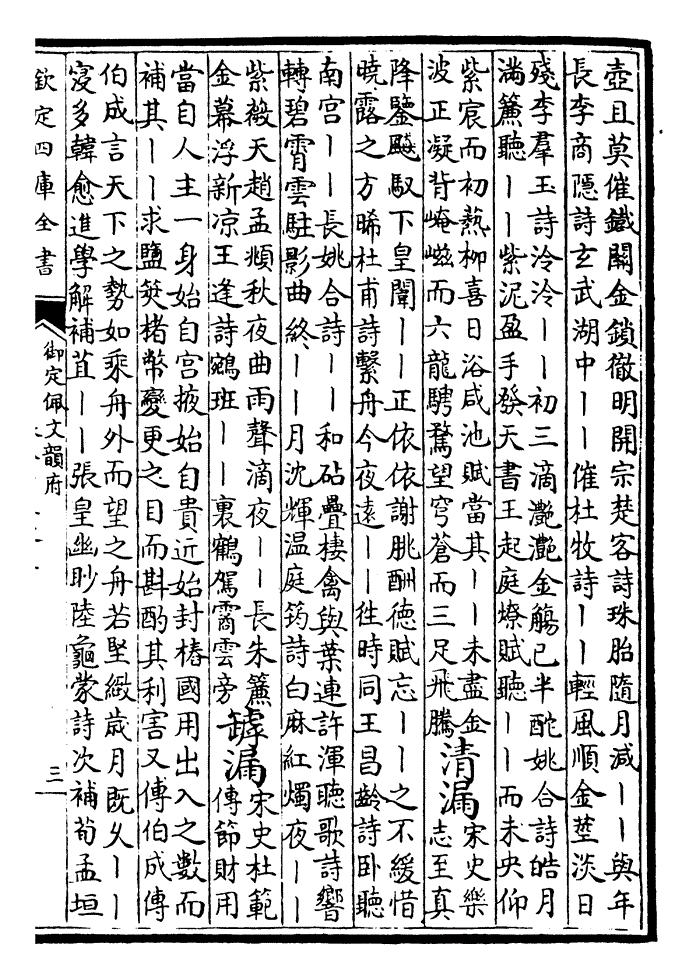 壺且莫催鐵關金鎖徹明開宗楚客詩珠胎隨月減丨丨與年
長李商隱詩玄武湖中丨丨催杜牧詩丨丨輕風順金莖淡日
殘李羣玉詩泠泠丨丨初三滴灔灔金觴已半酡姚合詩皓月
滿簾聽丨丨紫泥盈手發天書王起庭燎賦聽丨丨而未央仰
紫宸而初熱柳喜日浴咸池賦當其丨丨未盡金
波正凝背崦嵫而六龍騁騖望穹蒼而三足飛騰
清漏
宋史樂
志至真
降鑒飈馭下皇闈丨丨正依依謝朓酬德賦忘丨丨之不緩惜
曉露之方晞杜甫詩繫舟今夜遠丨丨往時同王昌齡詩卧聽
南宮丨丨長姚合詩丨丨和砧疊棲禽與葉連許渾聽歌詩響
轉碧霄雲駐影曲終丨丨月沈輝温庭筠詩白麻紅燭夜丨丨
紫薇天趙孟頫秋夜曲雨聲滴夜丨丨長朱簾
金幕浮新凉王逢詩鵷班丨丨裏鶴駕霱雲旁
罅漏
宋史杜範
傳節財用
當自人主一身始自宮掖始自貴近始封樁國用出入之數而
補其丨丨求鹽筴楮幣變更之目而斟酌其利害又傳伯成傳
伯成言天下之勢如乘舟外而望之舟若堅緻歲月既久丨丨
寖多韓愈進學解補苴丨丨張皇幽眇陸龜蒙詩次補荀孟垣
欽定四庫全書
御定佩文韻府
三